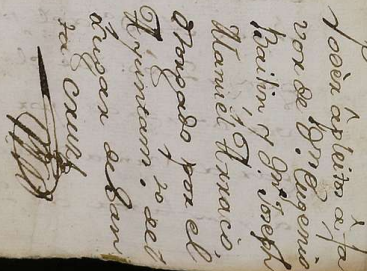 Poder apleitos a fa
vor de Dn. Eugenio
Bailin y Dn. Joseph
Maniel Arnaiô
otorgado por él
Ayuntam.to del
Lugar de San
ta Cruz